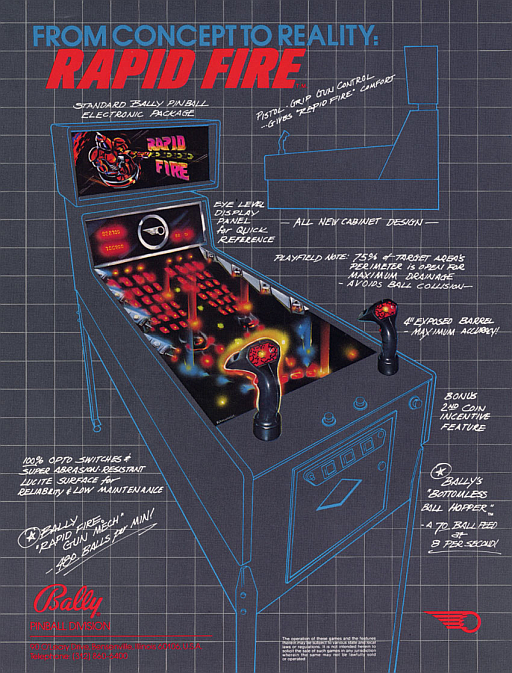 FROM CONCEPT TO REALITY:
RAPID FIRE™
STANDARD BALLY PINBALL
ELECTRONIC PACKAGE
PISTOL-GRIP GUN CONTROL
...GIVES "RAPID FIRE" COMFORT
RAPID
FIRE
EYE LEVEL
DISPLAY
PANEL
for QUICK
REFERENCE
— ALL NEW CABINET DESIGN —
PLAYFIELD NOTE: 75% of TARGET AREA'S
PERIMETER IS OPEN FOR
MAXIMUM DRAINAGE
- AVOIDS BALL COLLISION -
4" EXPOSED BARREL
- MAXIMUM ACCURACY!
BONUS
2ND COIN
INCENTIVE
FEATURE
100% OPTO SWITCHES &
SUPER ABRASION-RESISTANT
LUCITE SURFACE for
RELIABILITY & LOW MAINTENANCE
BALLY
"RAPID FIRE
GUN MECH"
- 480 BALLS per MIN!
BALLY'S
"BOTTOMLESS
BALL HOPPER"™
- A 70 BALL FEED
at
8 PER SECOND!
Bally
PINBALL DIVISION
The operation of these games and the features
therein may be subject to various state and local
laws or regulations. It is not intended herein to
solicit the sale of such games in any jurisdiction
wherein the same may not be lawfully sold
or operated